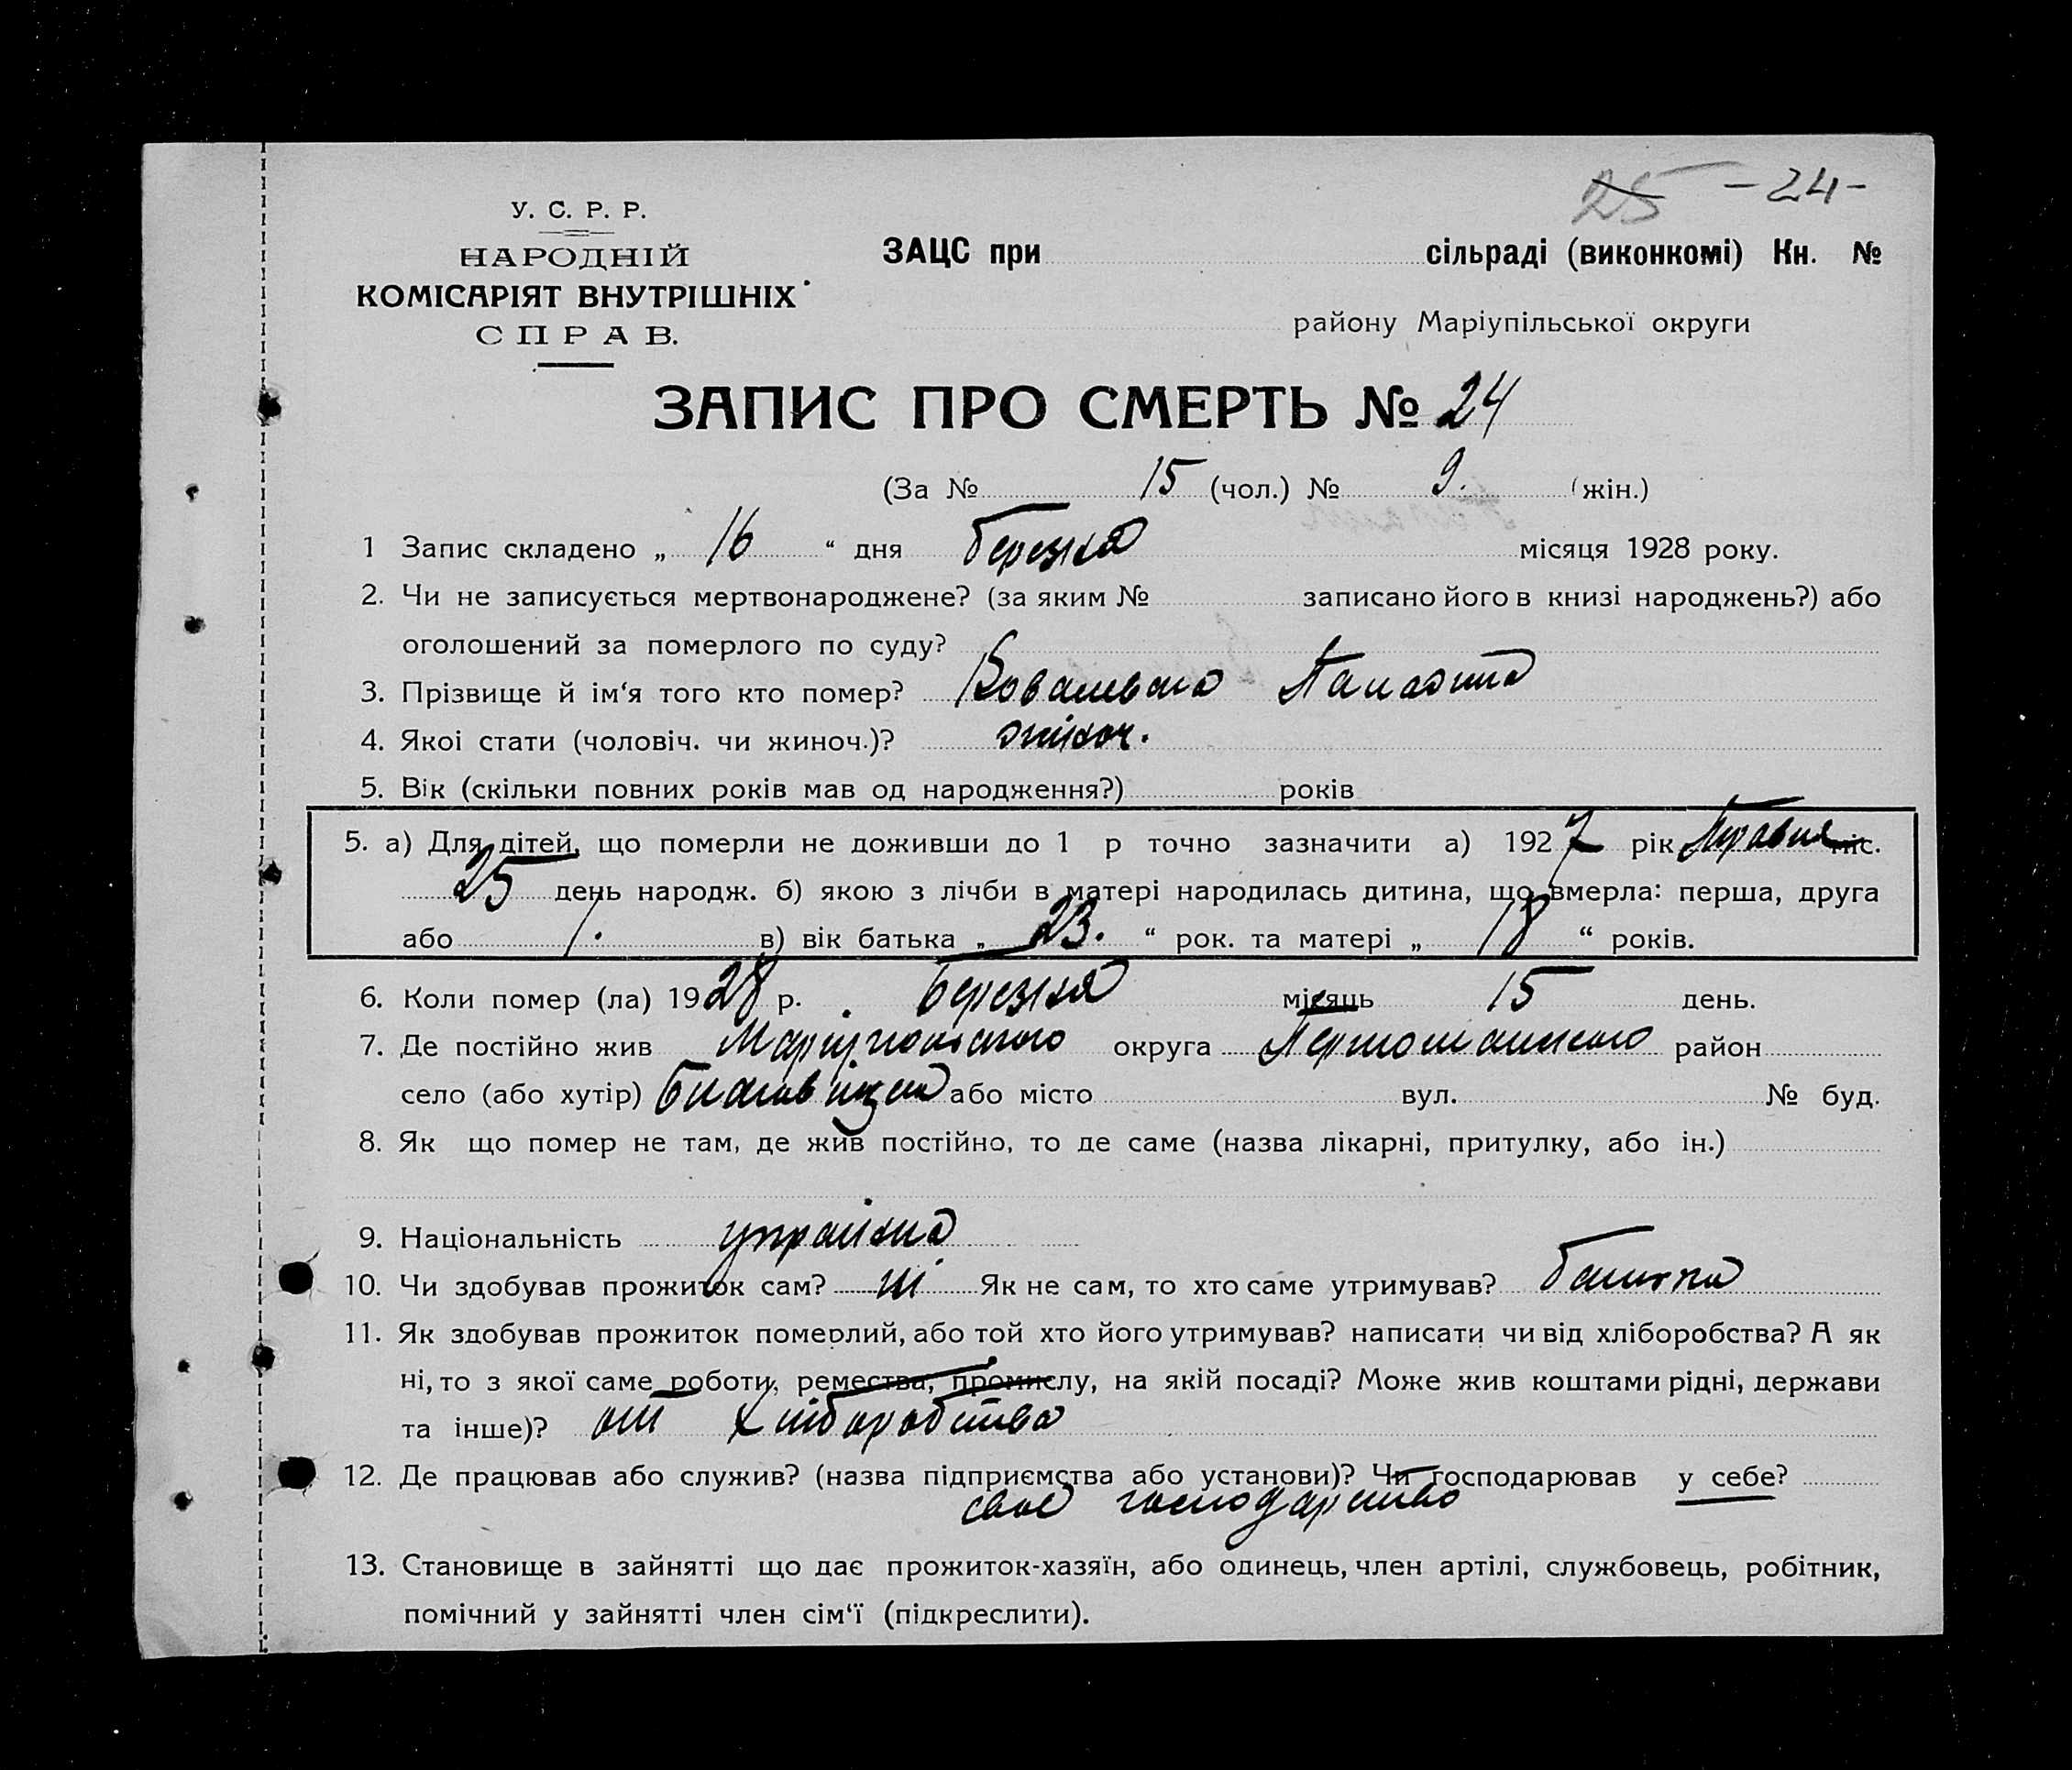 25 - 24 -
У. С. Р. Р.
НАРОДНІЙ
КОМІСАРІЯТ ВНУТРІШНІХ
СПРАВ.
ЗАЦС при сільраді (виконкомі) Кн. №
району Маріупільської округи
ЗАПИС ПРО СМЕРТЬ № 24
(За № 15 (чол.) № 9. (жін.)
1 Запис складено „ 16 “ дня березня місяця 1928 року.
2. Чи не записується мертвонароджене? (за яким № записано його в книзі народжень?) або
оголошений за померлого по суду?
3. Прізвище й ім‘я того кто помер?
4. Якоі стати (чоловіч. чи жиноч.)? жіноч.
5. Вік (скільки повних років мав од народження?) років
5. а) Для дітей, що померли не доживши до 1 р точно зазначити а) 1927 рік Травня міс.
25 день народж. б) якою з лічби в матері народилась дитина, що вмерла: перша, друга
або 1. в) вік батька „ 23. “ рок. та матері „ 18 “ років.
6. Коли помер (ла) 1928 р. березня місяць 15 день.
7. Де постійно жив округа район
село (або хутір) або місто вул. № буд.
8. Як що помер не там, де жив постійно, то де саме (назва лікарні, притулку, або ін.)
9. Національність українка
10. Чи здобував прожиток сам? ні Як не сам, то хто саме утримував? батько
11. Як здобував прожиток померлий, або той хто його утримував? написати чи від хліборобства? А як
ні, то з якої саме роботи, ремества, промислу, на якій посаді? Може жив коштами рідні, держави
та інше)? от хліборобства
12. Де працював або служив? (назва підприємства або установи)? Чи господарював у себе?
своє господарство
13. Становище в зайнятті що дає прожиток-хазяїн, або одинець, член артілі, службовець, робітник,
помічний у зайнятті член сім‘ї (підкреслити).